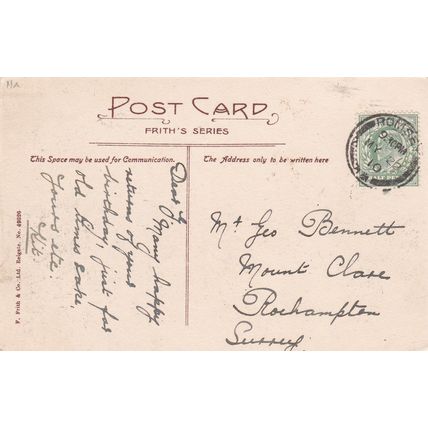 POST CARD
FRITH'S SERIES
This Space may be used for Communication.
The Address only to be written here
Dear G
Many happy
returns of your
birthday, just for
old times sake.
Yours etc.
Mr Geo Bennett
Mount Clare
Roehampton
Surrey
F. Frith & Co: Ltd. Reigate. No. 49926
ROMSEY